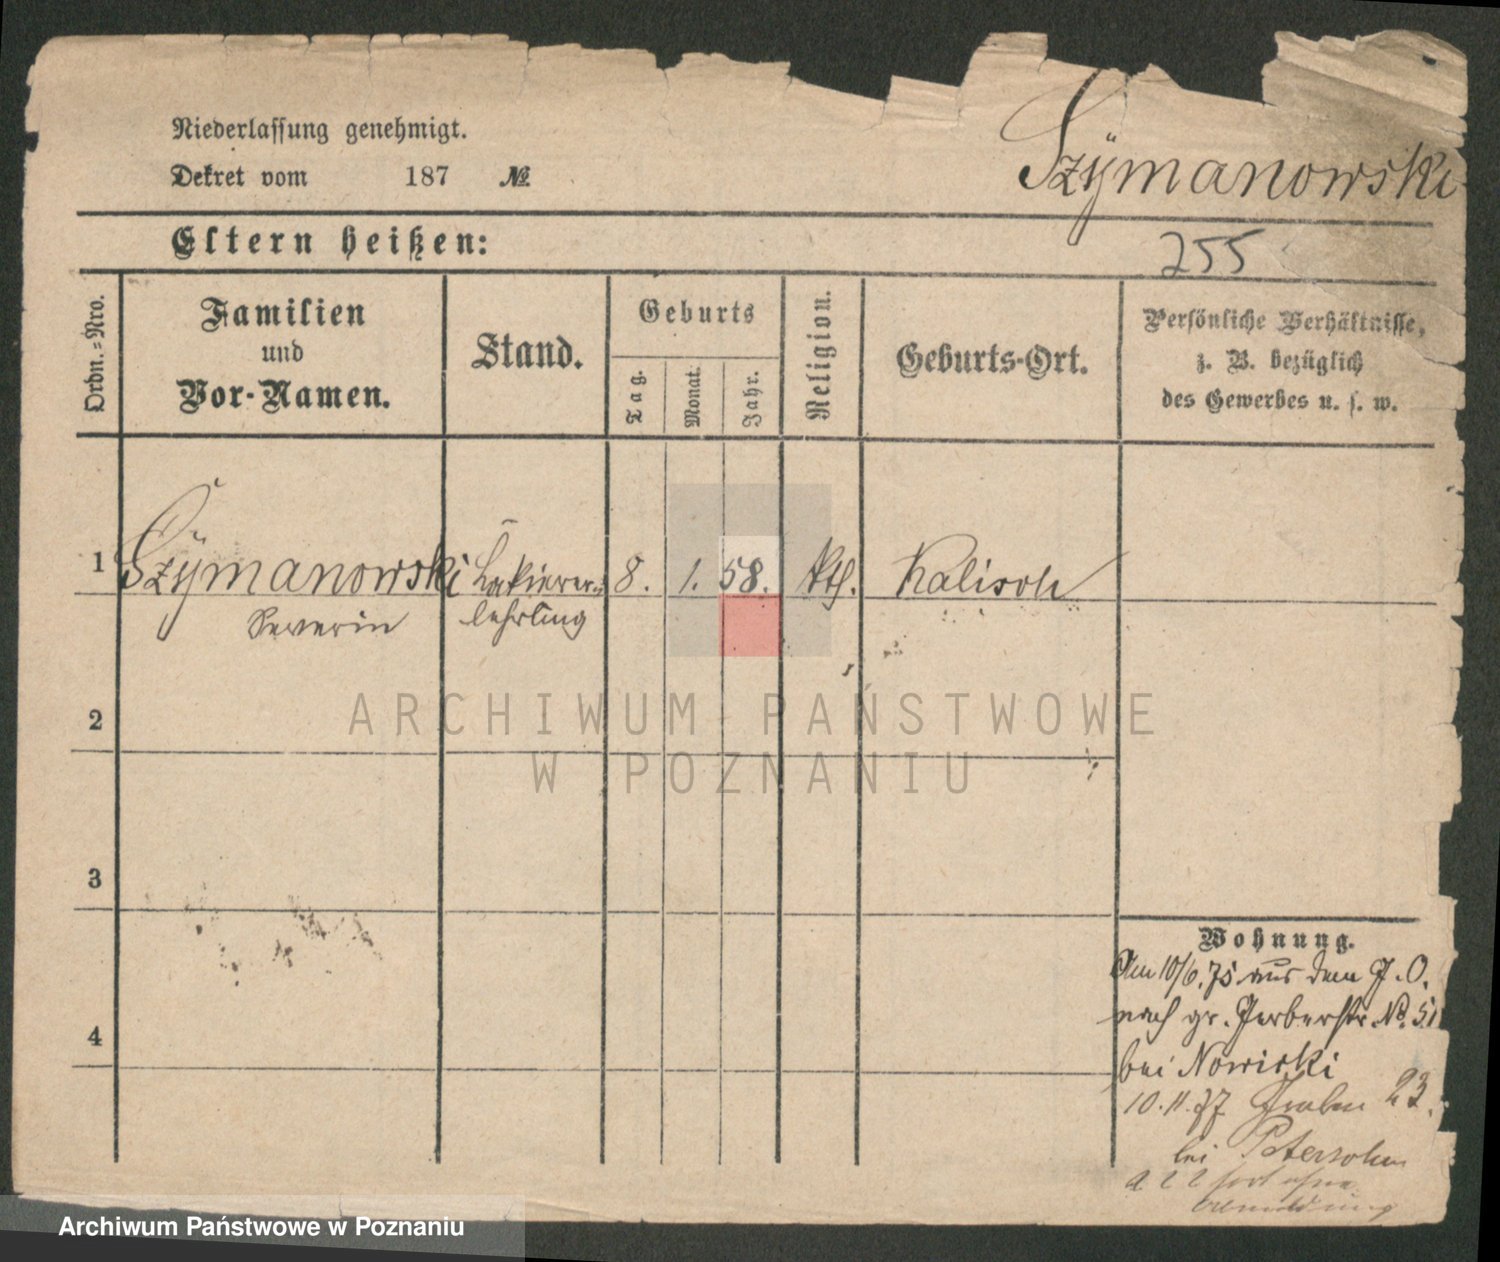 Niederlassung genehmigt.
Dekret vom 187 №
Szÿmanowski
Eltern heißen:
255
Ordn.-Nro.
Familien
und
Vor-Namen.
Stand.
Geburts
Tag.
Monat.
Jahr.
Religion.
Geburts-Ort.
Persönliche Verhältnisse,
z. B. bezüglich
des Gewerbes u. s. w.
1 Szÿmanowski Lakierer- 8. 1. 58. kth. Kalisch
Severin lehrling
2
3
4
Wohnung.
Am 10/6.75 aus dem J. O.
nach gr. Gerberstr. No. 51
bei Nowicki
10.11.77 Graben 23.
bei Petersohn
fort ohne
ARCHIWUM PAŃSTWOWE
W POZNANIU
Archiwum Państwowe w Poznaniu